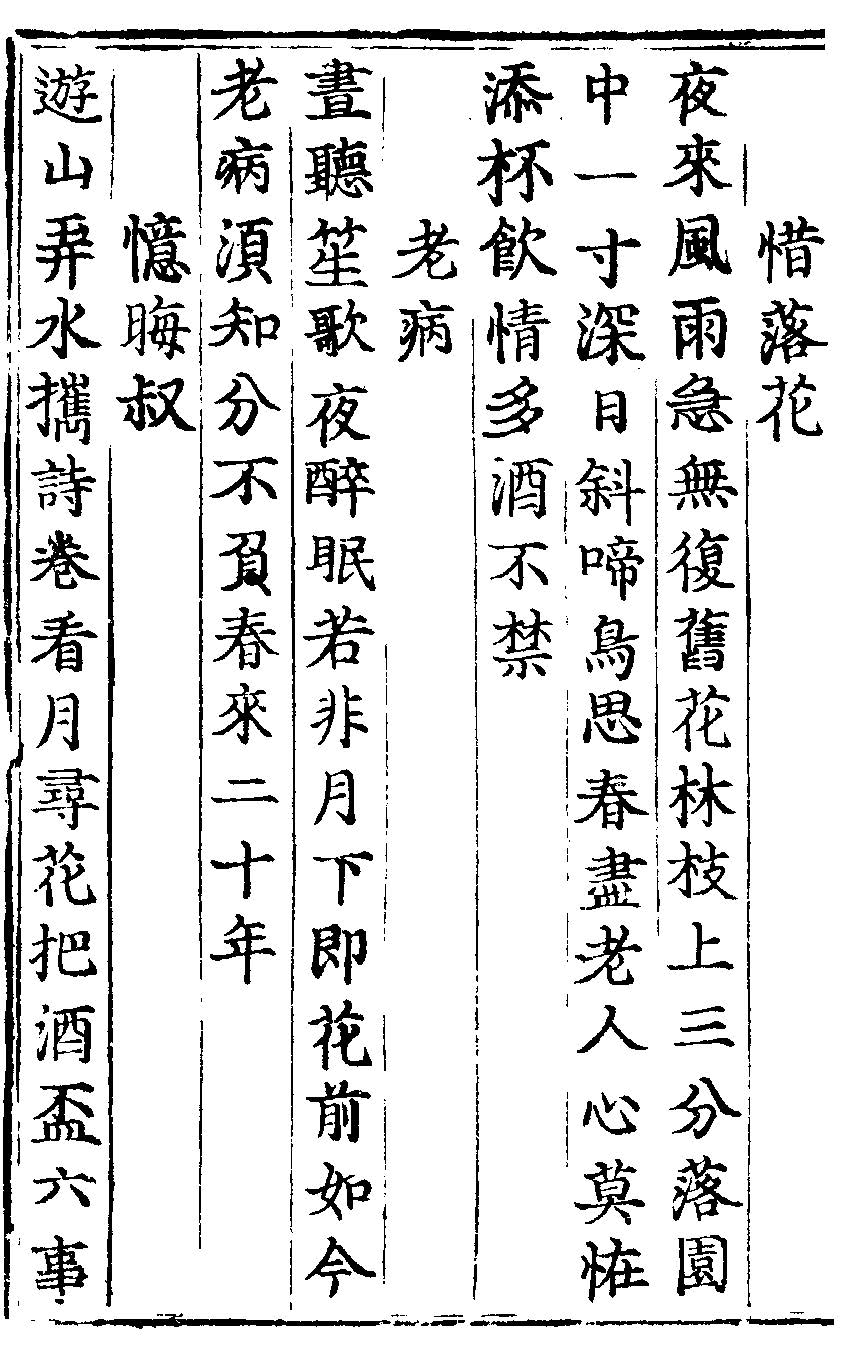 惜落花
夜來風雨急無復舊花林枝上三分落園
中一寸深日斜啼鳥思春盡老人心莫恠
添杯飲情多酒不禁
老病
晝聽笙歌夜醉眠若非月下即花前如今
老病湏知分不負春來二十年
憶晦叔
遊山弄水攜詩卷看月尋花把酒盃六事